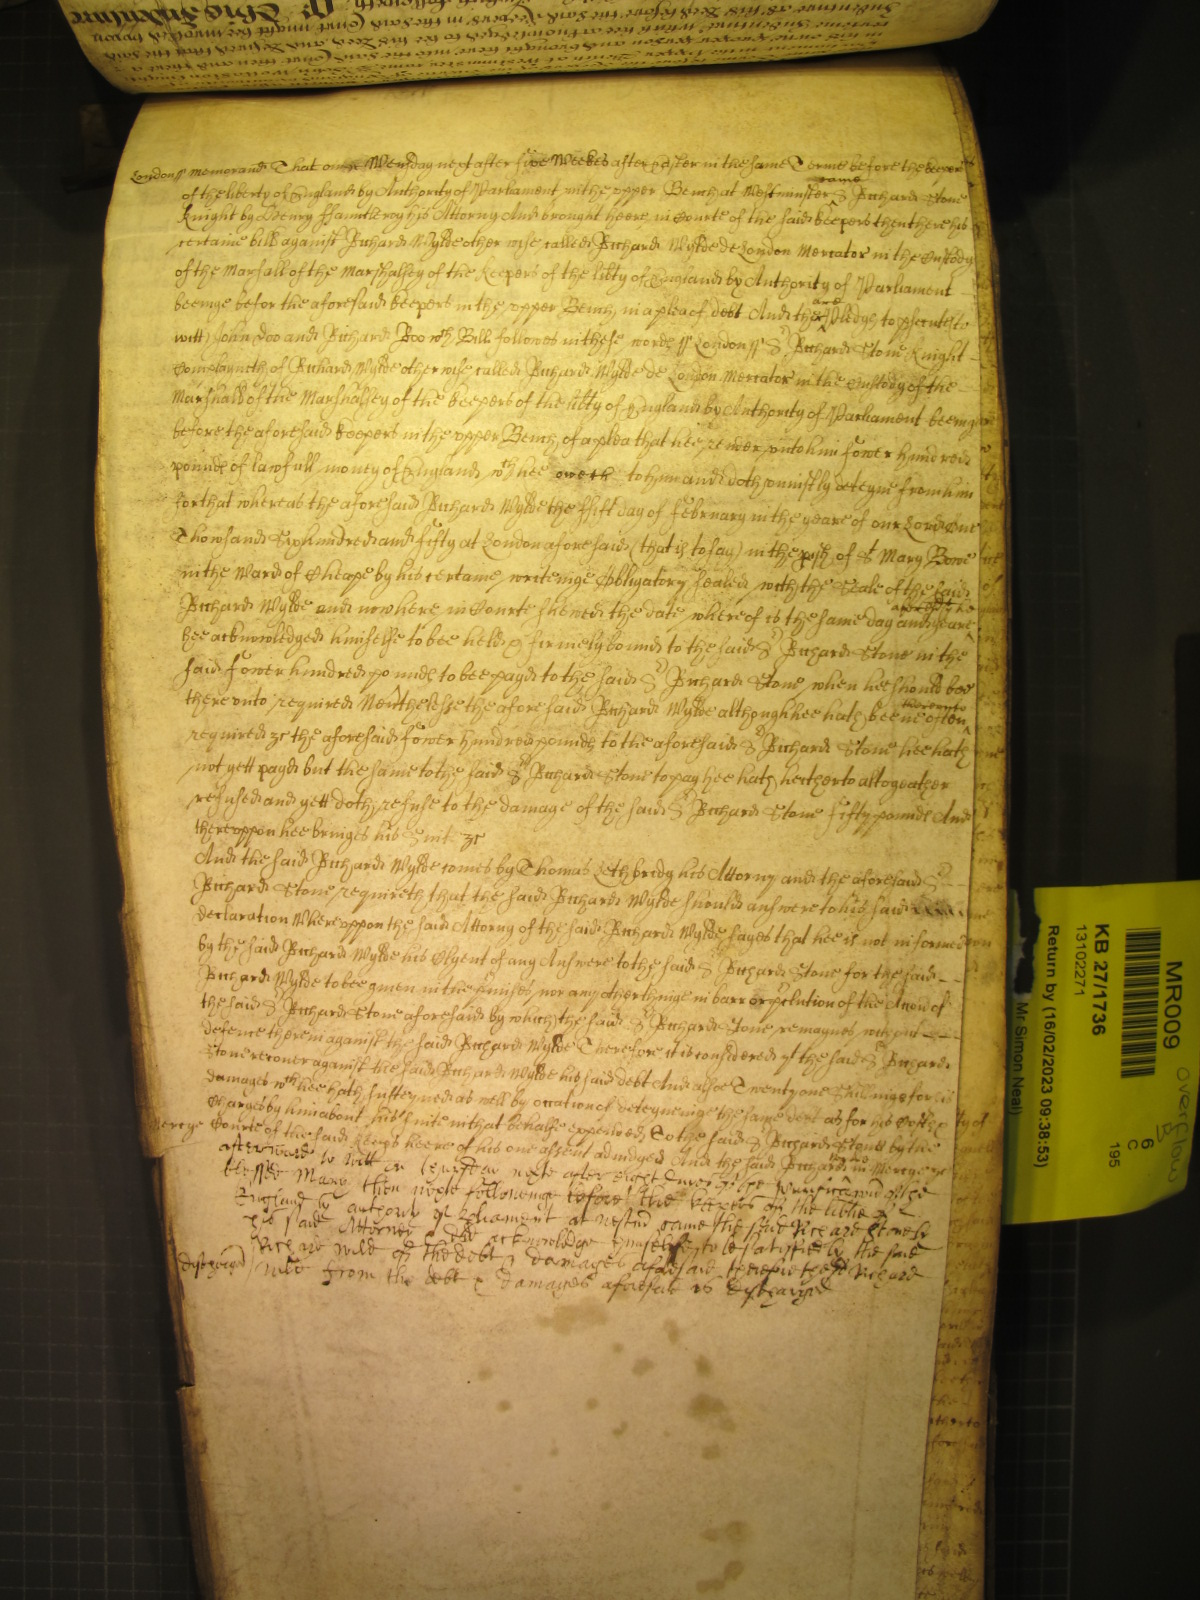 London ss Memorand That on Wensday next after five Weekes after Easter in the same Terme before the keepers
of the liberty of England by Authority of Parliament in the upper Bench at Westminster came Sr Richard Stone
Knight by Henry ffauntleroy his Attorny And brought heere in Courte of the said keepers then there his
certaine bill against Richard Wylde other wise called Richard Wylde de London Mercator in the Custody
of the Marshall of the Marshalsey of the Keepers of the libty of England by Authority of Parliament
beeinge before the aforesaid keepers in the upper Bench in a plea of debt And there are pledges to psecute to
witt John Doo and Richard Roo wch Bill followes in these words ss London ss Sr Richard Stone Knight
Complayneth of Richard Wylde other wise called Richard Wylde de London Mercator in the Custody of the
Marshall of the Marshalsey of the keepers of the libty of England by Authority of Parliament beeing
before the aforesaid keepers in the upper Bench of a plea that hee render unto him fower hundred
pounds of lawfull money of England wch hee oweth to him and doth uniustly deteyne from him
for that whereas the aforesaid Richard Wylde the ffift day of February in the yeare of our Lord One
Thowsand Six hundred and fifty at London aforesaid (that is to say) in the pish of St Mary Bowe
in the Ward of Cheape by his certaine writeinge Obbligatory sealed with the Seale of the said
Richard Wylde and now here in Courte shewed the date whereof is the same day and yeare
hee acknowledged himselfe to bee held & firmely bound to the said Sr Richard Stone in the
said fower hundred pounds to bee payd to the said Sr Richard Stone when hee should bee
there unto required Neverthelesse the aforesaid Richard Wylde although hee hath beene often thereunto
required &c the aforesaid fower hundred pounds to the aforesaid Sr Richard Stone hee hath
not yett payd but the same to the said Sr Richard Stone to pay hee hath hitherto altogeather
refused and yett doth refuse to the damage of the said Sr Richard Stone fifty pounds And
thereuppon hee bringes his Suit &c
And the said Richard Wylde comes by Thomas Lethbridg his Attorny and the aforesaid Sr
Richard Stone requireth that the said Richard Wylde should answere to his said
declaration Whereuppon the said Attorny of the said Richard Wylde sayes that hee is not informed
by the said Richard Wylde his Clyent of any Answere to the said Sr Richard Stone for the said
Richard Wylde to bee given in the pmises nor any other thinge in barr or pclution of the Accion of
the said Sr Richard Stone aforesaid by which the said Sr Richard Stone remaynes without
defence therein against the said Richard Wylde Therefore it is considered yt the said Sr Richard
Stone recover against the said Richard Wylde his said debt And alsoe Twenty one Shillings for his
damages wch hee hath susteyned as well by occation of deteyneinge the same debt as for his Costs &
Charges by him about his suite in that behalfe expended To the said Sr Richard Stone by the
Mercye Courte of the said keeps heere of his owne assent adiudged And the said Richard in Mercye &c
afterward to witt on next after eight dayes of the purificacion of the
blessed Mary then next followinge before the keepers of the libtie of
England by authority of parliament at Westmr came the said Richard Stone by
his said Attorney & did acknowledge himselfe to be satisfied by the said
Richard Wild of the debt & damages aforesaid therefore the sd Richard
discharged Wild from the debt & damages aforesaid is discharged
MR009
overflow
B
KB 27/1736
13102271
6
C
195
Return by (16/02/2023 09:38:53)
Mr Simon Neal)